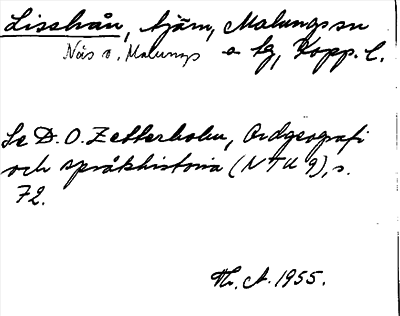 Lisshån, tjärn, Malungs sn
Näs o. Malungs a tg, Kopp. l.
Se D. O. Zetterholm, Ordgeografi
och språkhistoria (NTU 9), s.
72.
Th. A. 1955.